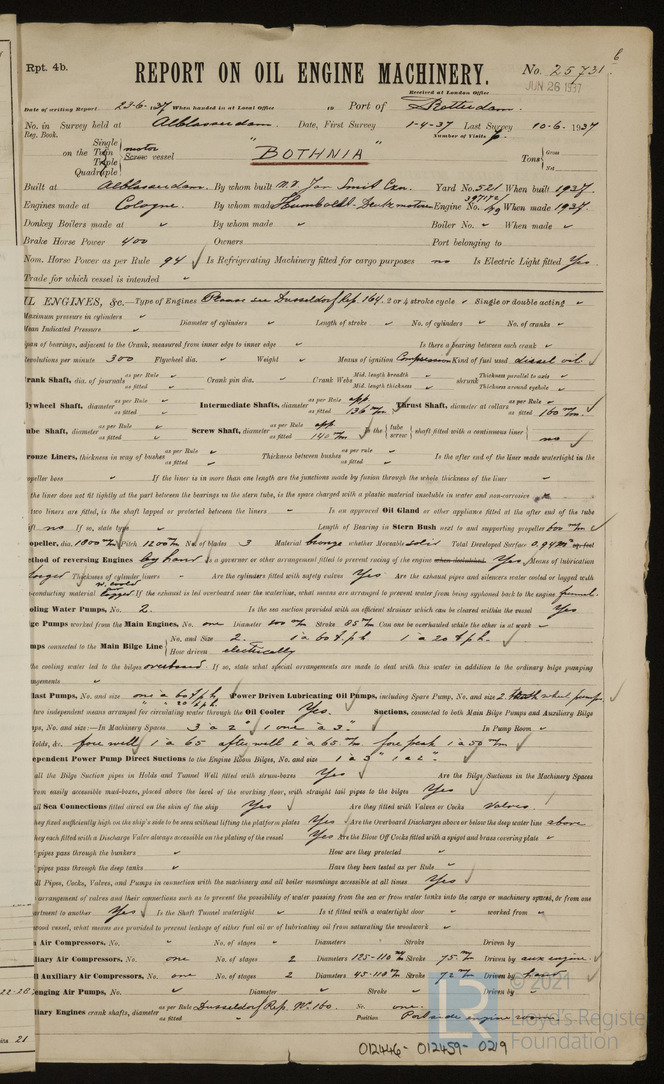 6
Rpt. 4b.
REPORT ON OIL ENGINE MACHINERY.
No. 25731
Received at London Office
JUN 26 1937
Date of writing Report 23-6-37 When handed in at Local Office 19 Port of Rotterdam.
No. in Reg. Book. Survey held at Alblasserdam. Date, First Survey 1-4-37 Last Survey 10-6-1937
Number of Visits 7.
on the Single Twin Triple Quadruple motor Screw vessel "BOTHNIA" Tons Gross Net
Built at Alblasserdam. By whom built N.V. Jan Smit Czn. Yard No. 521 When built 1937.
Engines made at Cologne. By whom made Humboldt-Deutz motoren Engine No. When made 1937.
Donkey Boilers made at By whom made Boiler No. When made
Brake Horse Power 400 Owners Port belonging to
Nom. Horse Power as per Rule 94 Is Refrigerating Machinery fitted for cargo purposes no Is Electric Light fitted Yes.
Trade for which vessel is intended
IL ENGINES, &c.—Type of Engines Please see Dusseldorf Rep. 164. 2 or 4 stroke cycle Single or double acting
Maximum pressure in cylinders Diameter of cylinders Length of stroke No. of cylinders No. of cranks
Mean Indicated Pressure
pan of bearings, adjacent to the Crank, measured from inner edge to inner edge Is there a bearing between each crank
Revolutions per minute 300 Flywheel dia. Weight Means of ignition Compression Kind of fuel used diesel oil.
Crank Shaft, dia. of journals as per Rule as fitted Crank pin dia. Crank Webs Mid. length breadth Mid. length thickness shrunk Thickness parallel to axis Thickness around eyehole
lywheel Shaft, diameter as per Rule as fitted Intermediate Shafts, diameter as per Rule app. as fitted 136 m/m Thrust Shaft, diameter at collars as per Rule as fitted 160 m/m.
ube Shaft, diameter as per Rule as fitted Screw Shaft, diameter as per Rule app. as fitted 140 m/m Is the tube screw shaft fitted with a continuous liner no
ronze Liners, thickness in way of bushes as per Rule as fitted Thickness between bushes as per rule as fitted Is the after end of the liner made watertight in the
opeller boss If the liner is in more than one length are the junctions made by fusion through the whole thickness of the liner
the liner does not fit tightly at the part between the bearings in the stern tube, is the space charged with a plastic material insoluble in water and non-corrosive
two liners are fitted, is the shaft lapped or protected between the liners Is an approved Oil Gland or other appliance fitted at the after end of the tube
ft no If so, state type Length of Bearing in Stern Bush next to and supporting propeller 600 m/m
opeller, dia. 1800 m/m Pitch 1200 m/m No. of blades 3 Material bronze whether Moveable solid Total Developed Surface 0.94 m² sq. feet
ethod of reversing Engines by hand Is a governor or other arrangement fitted to prevent racing of the engine when declutched Yes. Means of lubrication
forced Thickness of cylinder liners Are the cylinders fitted with safety valves Yes Are the exhaust pipes and silencers water cooled or lagged with
-conducting material w. cooled lagged. If the exhaust is led overboard near the waterline, what means are arranged to prevent water from being syphoned back to the engine funnel.
oling Water Pumps, No. 2. Is the sea suction provided with an efficient strainer which can be cleared within the vessel Yes
ge Pumps worked from the Main Engines, No. one Diameter 100 m/m Stroke 65 m/m Can one be overhauled while the other is at work
mps connected to the Main Bilge Line No. and Size 2. 1 a 60 t.p.h. 1 a 20 t.p.h.
How driven electrically
the cooling water led to the bilges overboard. If so, state what special arrangements are made to deal with this water in addition to the ordinary bilge pumping
angements
llast Pumps, No. and size one a 60 t.p.h. " a 20 t.p.h. Power Driven Lubricating Oil Pumps, including Spare Pump, No. and size 2 tooth wheel pumps
two independent means arranged for circulating water through the Oil Cooler Yes. Suctions, connected to both Main Bilge Pumps and Auxiliary Bilge
mps, No. and size:—In Machinery Spaces 3 a 2" 1 one a 3". In Pump Room
Holds, &c. fore well 1 a 65 after well 2 a 65 m/m fore peak 1 a 50 m/m
ependent Power Pump Direct Suctions to the Engine Room Bilges, No. and size 1 a 3" 1 a 2".
all the Bilge Suction pipes in Holds and Tunnel Well fitted with strum-boxes Yes Are the Bilge Suctions in the Machinery Spaces
rom easily accessible mud-boxes, placed above the level of the working floor, with straight tail pipes to the bilges Yes
all Sea Connections fitted direct on the skin of the ship Yes Are they fitted with Valves or Cocks valves.
they fixed sufficiently high on the ship's side to be seen without lifting the platform plates Yes Are the Overboard Discharges above or below the deep water line above
they each fitted with a Discharge Valve always accessible on the plating of the vessel Yes Are the Blow Off Cocks fitted with a spigot and brass covering plate
pipes pass through the bunkers How are they protected
pipes pass through the deep tanks Have they been tested as per Rule
all Pipes, Cocks, Valves, and Pumps in connection with the machinery and all boiler mountings accessible at all times Yes
arrangement of valves and their connections such as to prevent the possibility of water passing from the sea or from water tanks into the cargo or machinery spaces, or from one
artment to another Yes Is the Shaft Tunnel watertight Is it fitted with a watertight door worked from
wood vessel, what means are provided to prevent leakage of either fuel oil or of lubricating oil from saturating the woodwork
n Air Compressors, No. No. of stages Diameters Stroke Driven by
iliary Air Compressors, No. one No. of stages 2 Diameters 125-110 m/m Stroke 75 m/m Driven by aux engine.
ll Auxiliary Air Compressors, No. one No. of stages 2 Diameters 45-110 m/m Stroke 72 m/m Driven by hand
enging Air Pumps, No. Diameter Stroke Driven by
iliary Engines crank shafts, diameter as per Rule Dusseldorf Rep. No. 160. as fitted No. one. Position Port side engine room.
21
012446-012459-0219
© 2021
Lloyd's Register
Foundation